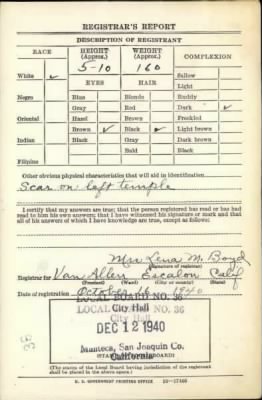 REGISTRAR'S REPORT
DESCRIPTION OF REGISTRANT
RACE HEIGHT (Approx.) WEIGHT (Approx.) COMPLEXION
5-10 160
White ✓ Sallow
EYES HAIR Light
Negro Blue Blonde Ruddy
Gray Red Dark ✓
Oriental Hazel Brown Freckled
Brown ✓ Black ✓ Light brown
Indian Black Gray Dark brown
Bald Black
Filipino
Other obvious physical characteristics that will aid in identification
Scar on left temple
I certify that my answers are true; that the person registered has read or has had
read to him his own answers; that I have witnessed his signature or mark and that
all of his answers of which I have knowledge are true, except as follows:
Mrs Lena M. Boyd
(Signature of registrar)
Registrar for Van Allen Escalon Calif
(Precinct) (Ward) (City or county) (State)
Date of registration October 16 1940
LOCAL BOARD NO. 36
City Hall
LOCAL BOARD NO. 36
City Hall
DEC 12 1940
Manteca, San Joaquin Co.
California
(The stamp of the Local Board having jurisdiction of the registrant
shall be placed in the above space.)
U. S. GOVERNMENT PRINTING OFFICE 16-17460